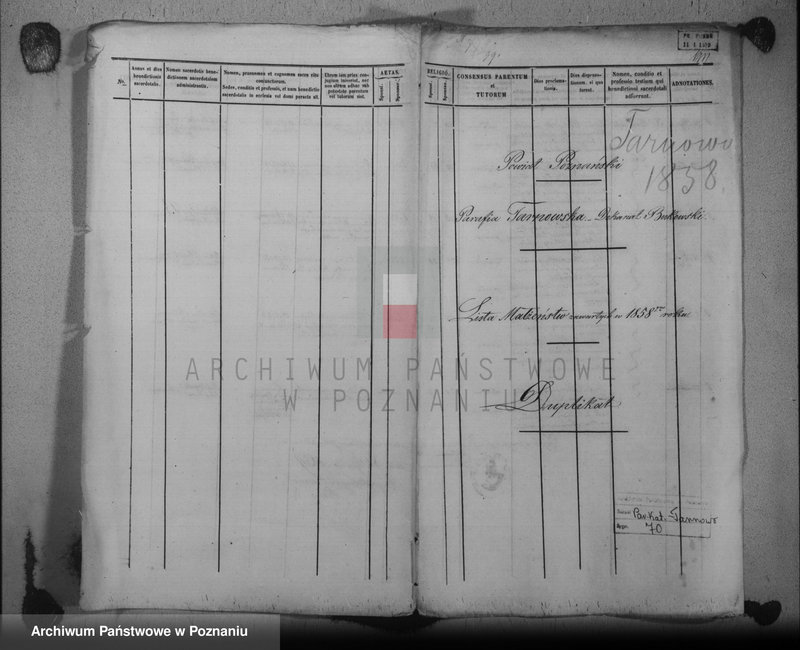 No.
Annus et dies benedictionis sacerdotalis.
Nomen sacerdotis benedictionem sacerdotalem administrantis.
Nomen, praenomen et cognomen sacro ritu coniunctorum.
Sedes, conditio et professio, et num benedictio sacerdotalis in ecclesia vel domi peracta sit.
Utrum iam prius conjugium inierint, nec non utrum adhuc sub potestate parentum vel tutorum sint.
AETAS.
Sponsi.
Sponsae.
RELIGIO.
Sponsi.
Sponsae.
CONSENSUS PARENTUM
et
TUTORUM
Dies proclamationis.
Dies dispensationum si qua fuerunt.
Nomen, conditio et professio testium qui benedictioni sacerdotali adfuerunt.
ADNOTATIONES.
Tarnowo
1858.
Powiat Poznański
Parafia Tarnowska - Dekanat Bukowski.
Lista Małżeństw zawartych w 1858ym roku
Duplikat
Par. Kat. Tarnowo
70
ARCHIWUM PAŃSTWOWE
W POZNANIU
Archiwum Państwowe w Poznaniu